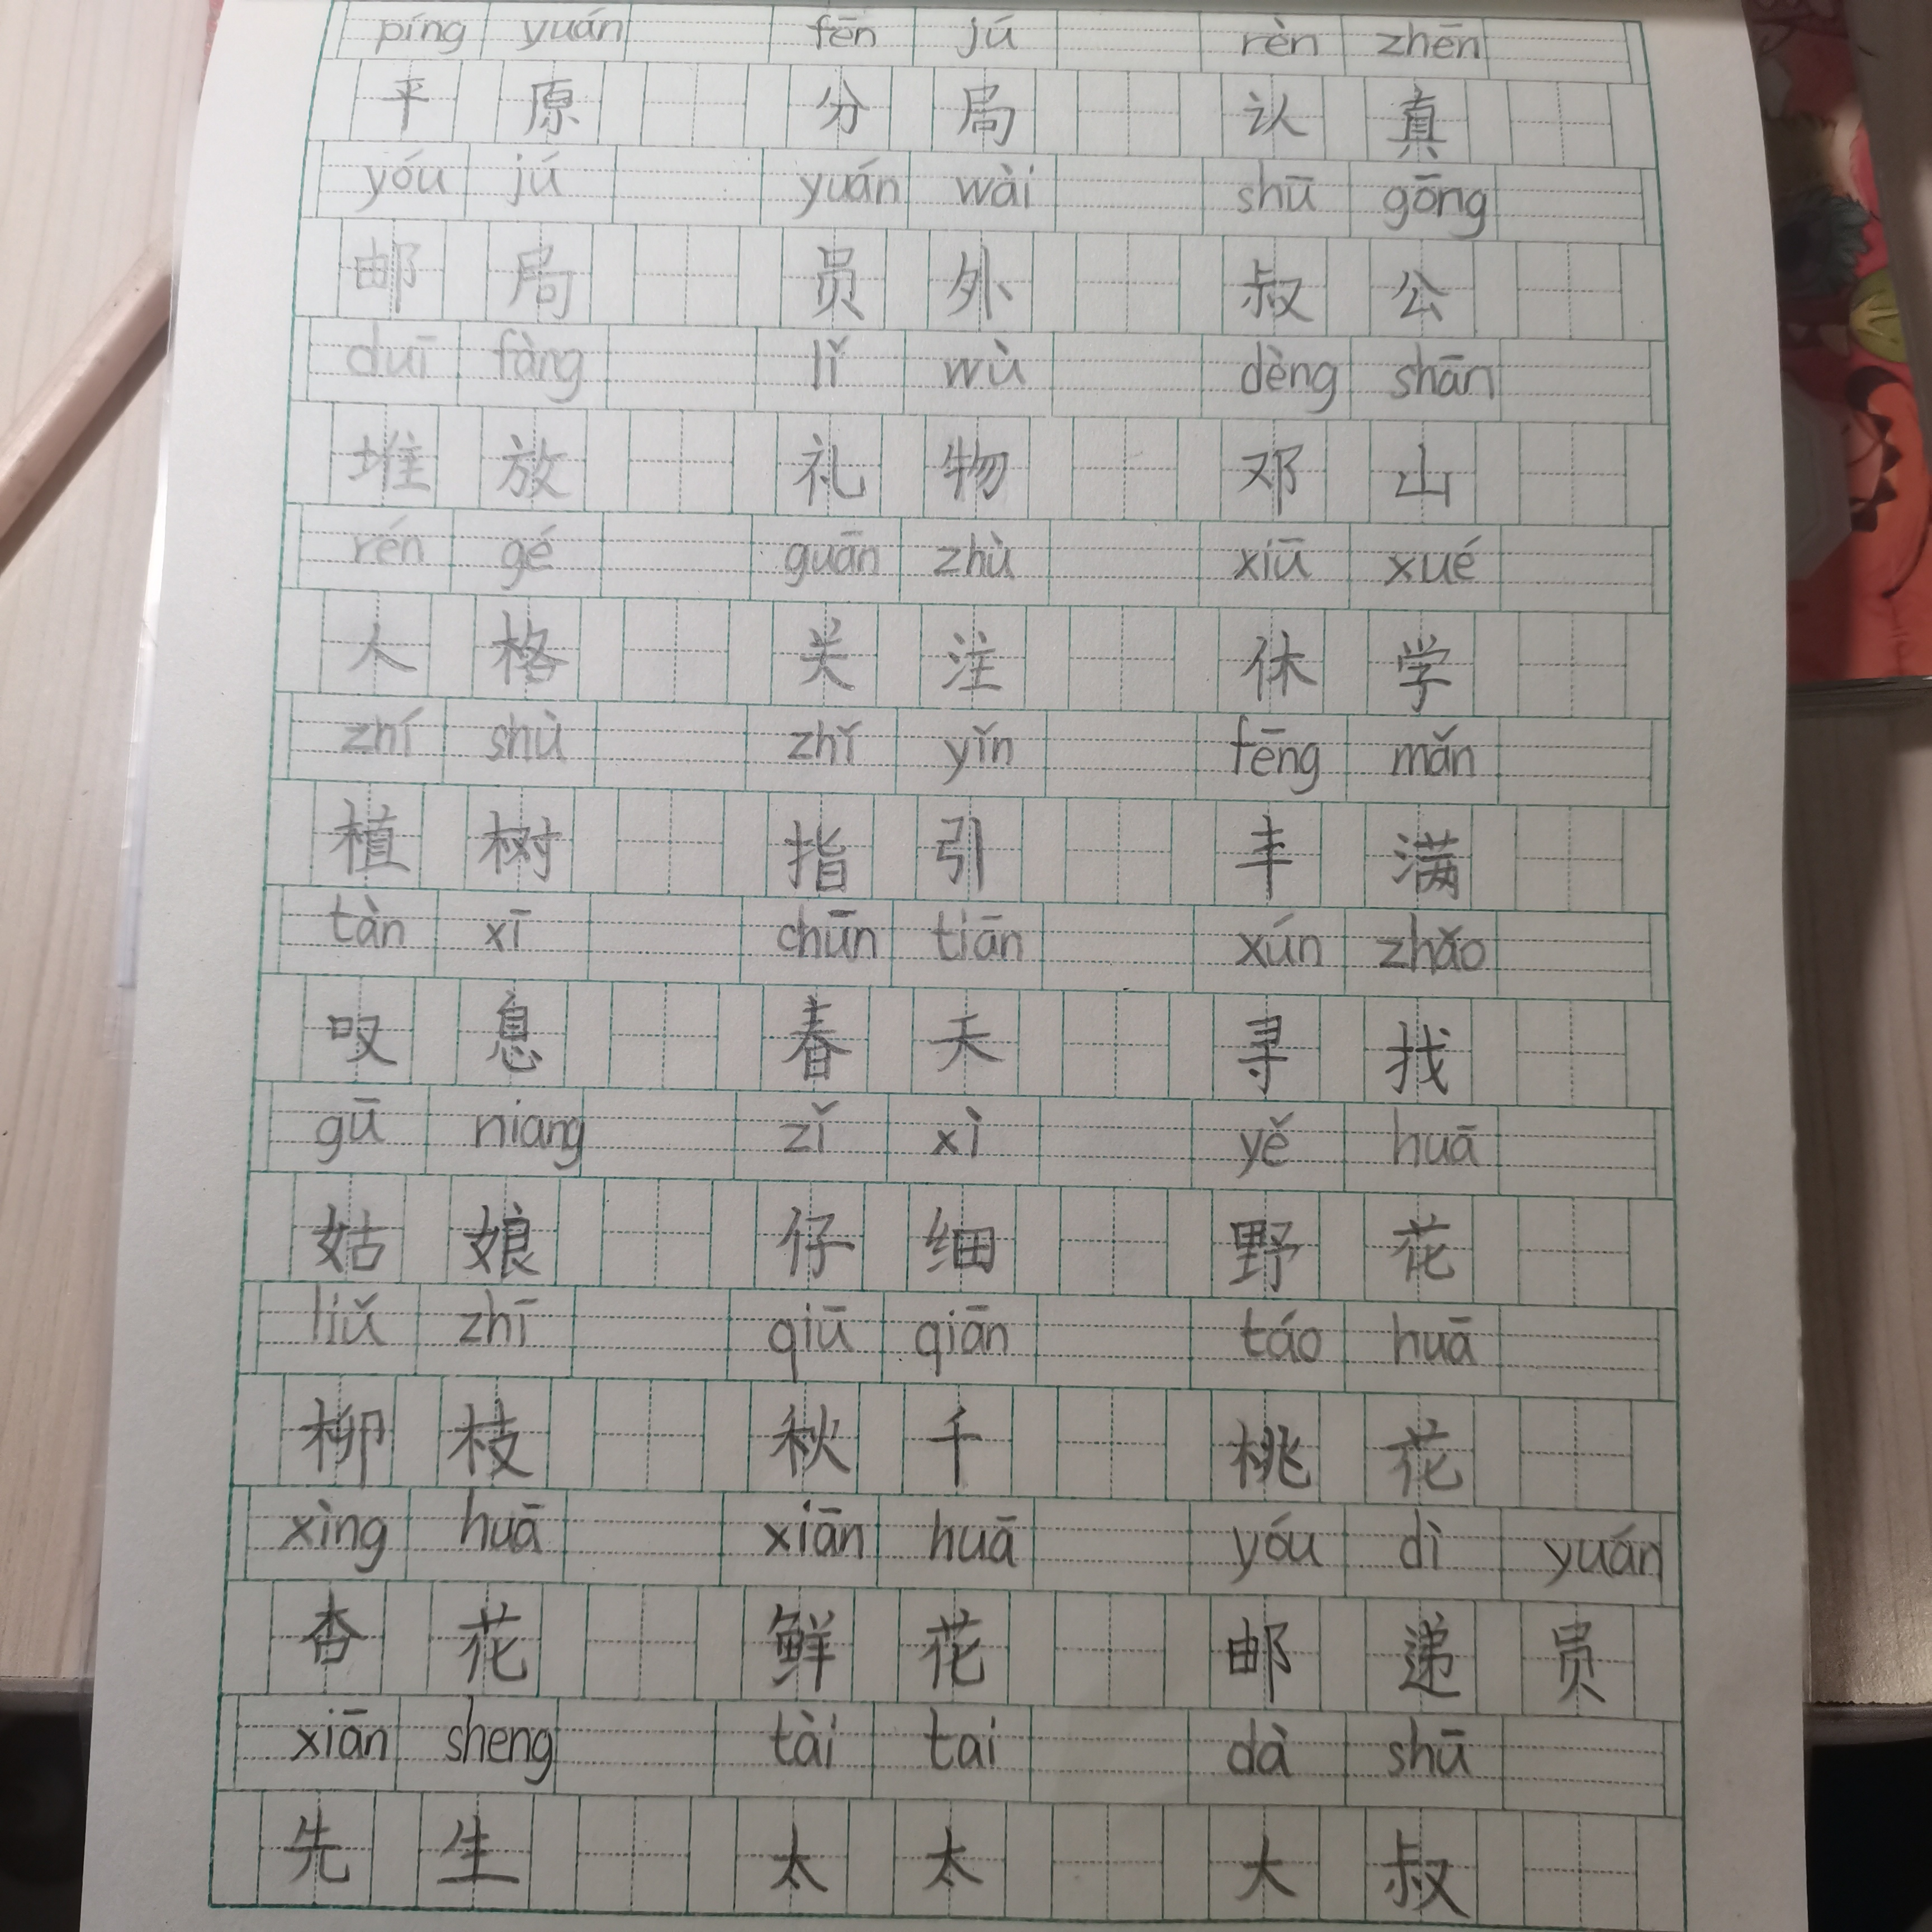 píng yuán fēn jú rèn zhēn
平原 分局 认真
yóu jú yuán wài shū gōng
邮局 员外 叔公
duī fàng lǐ wù dèng shān
堆放 礼物 邓山
rén gé guān zhù xiū xué
人格 关注 休学
zhí shù zhǐ yǐn fēng mǎn
植树 指引 丰满
tàn xī chūn tiān xún zhǎo
叹息 春天 寻找
gū niang zǐ xì yě huā
姑娘 仔细 野花
liǔ zhī qiū qiān táo huā
柳枝 秋千 桃花
xìng huā xiān huā yóu dì yuán
杏花 鲜花 邮递员
xiān sheng tài tai dà shū
先生 太太 大叔